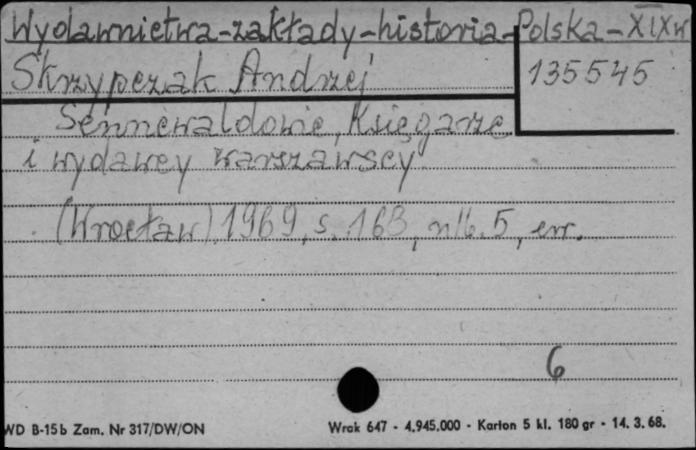 Wydawnictwa-zakłady-historia-Polska-XIXw
Skrzypczak Andrzej
135545
Sennewaldowie, Księgarze
i wydawcy warszawscy
(Wrocław) 1969, s. 163, nlb. 5, err.
6
WD B-15b Zam. Nr 317/DW/ON
Wrak 647 - 4.945.000 - Karton 5 kl. 180 gr - 14. 3. 68.